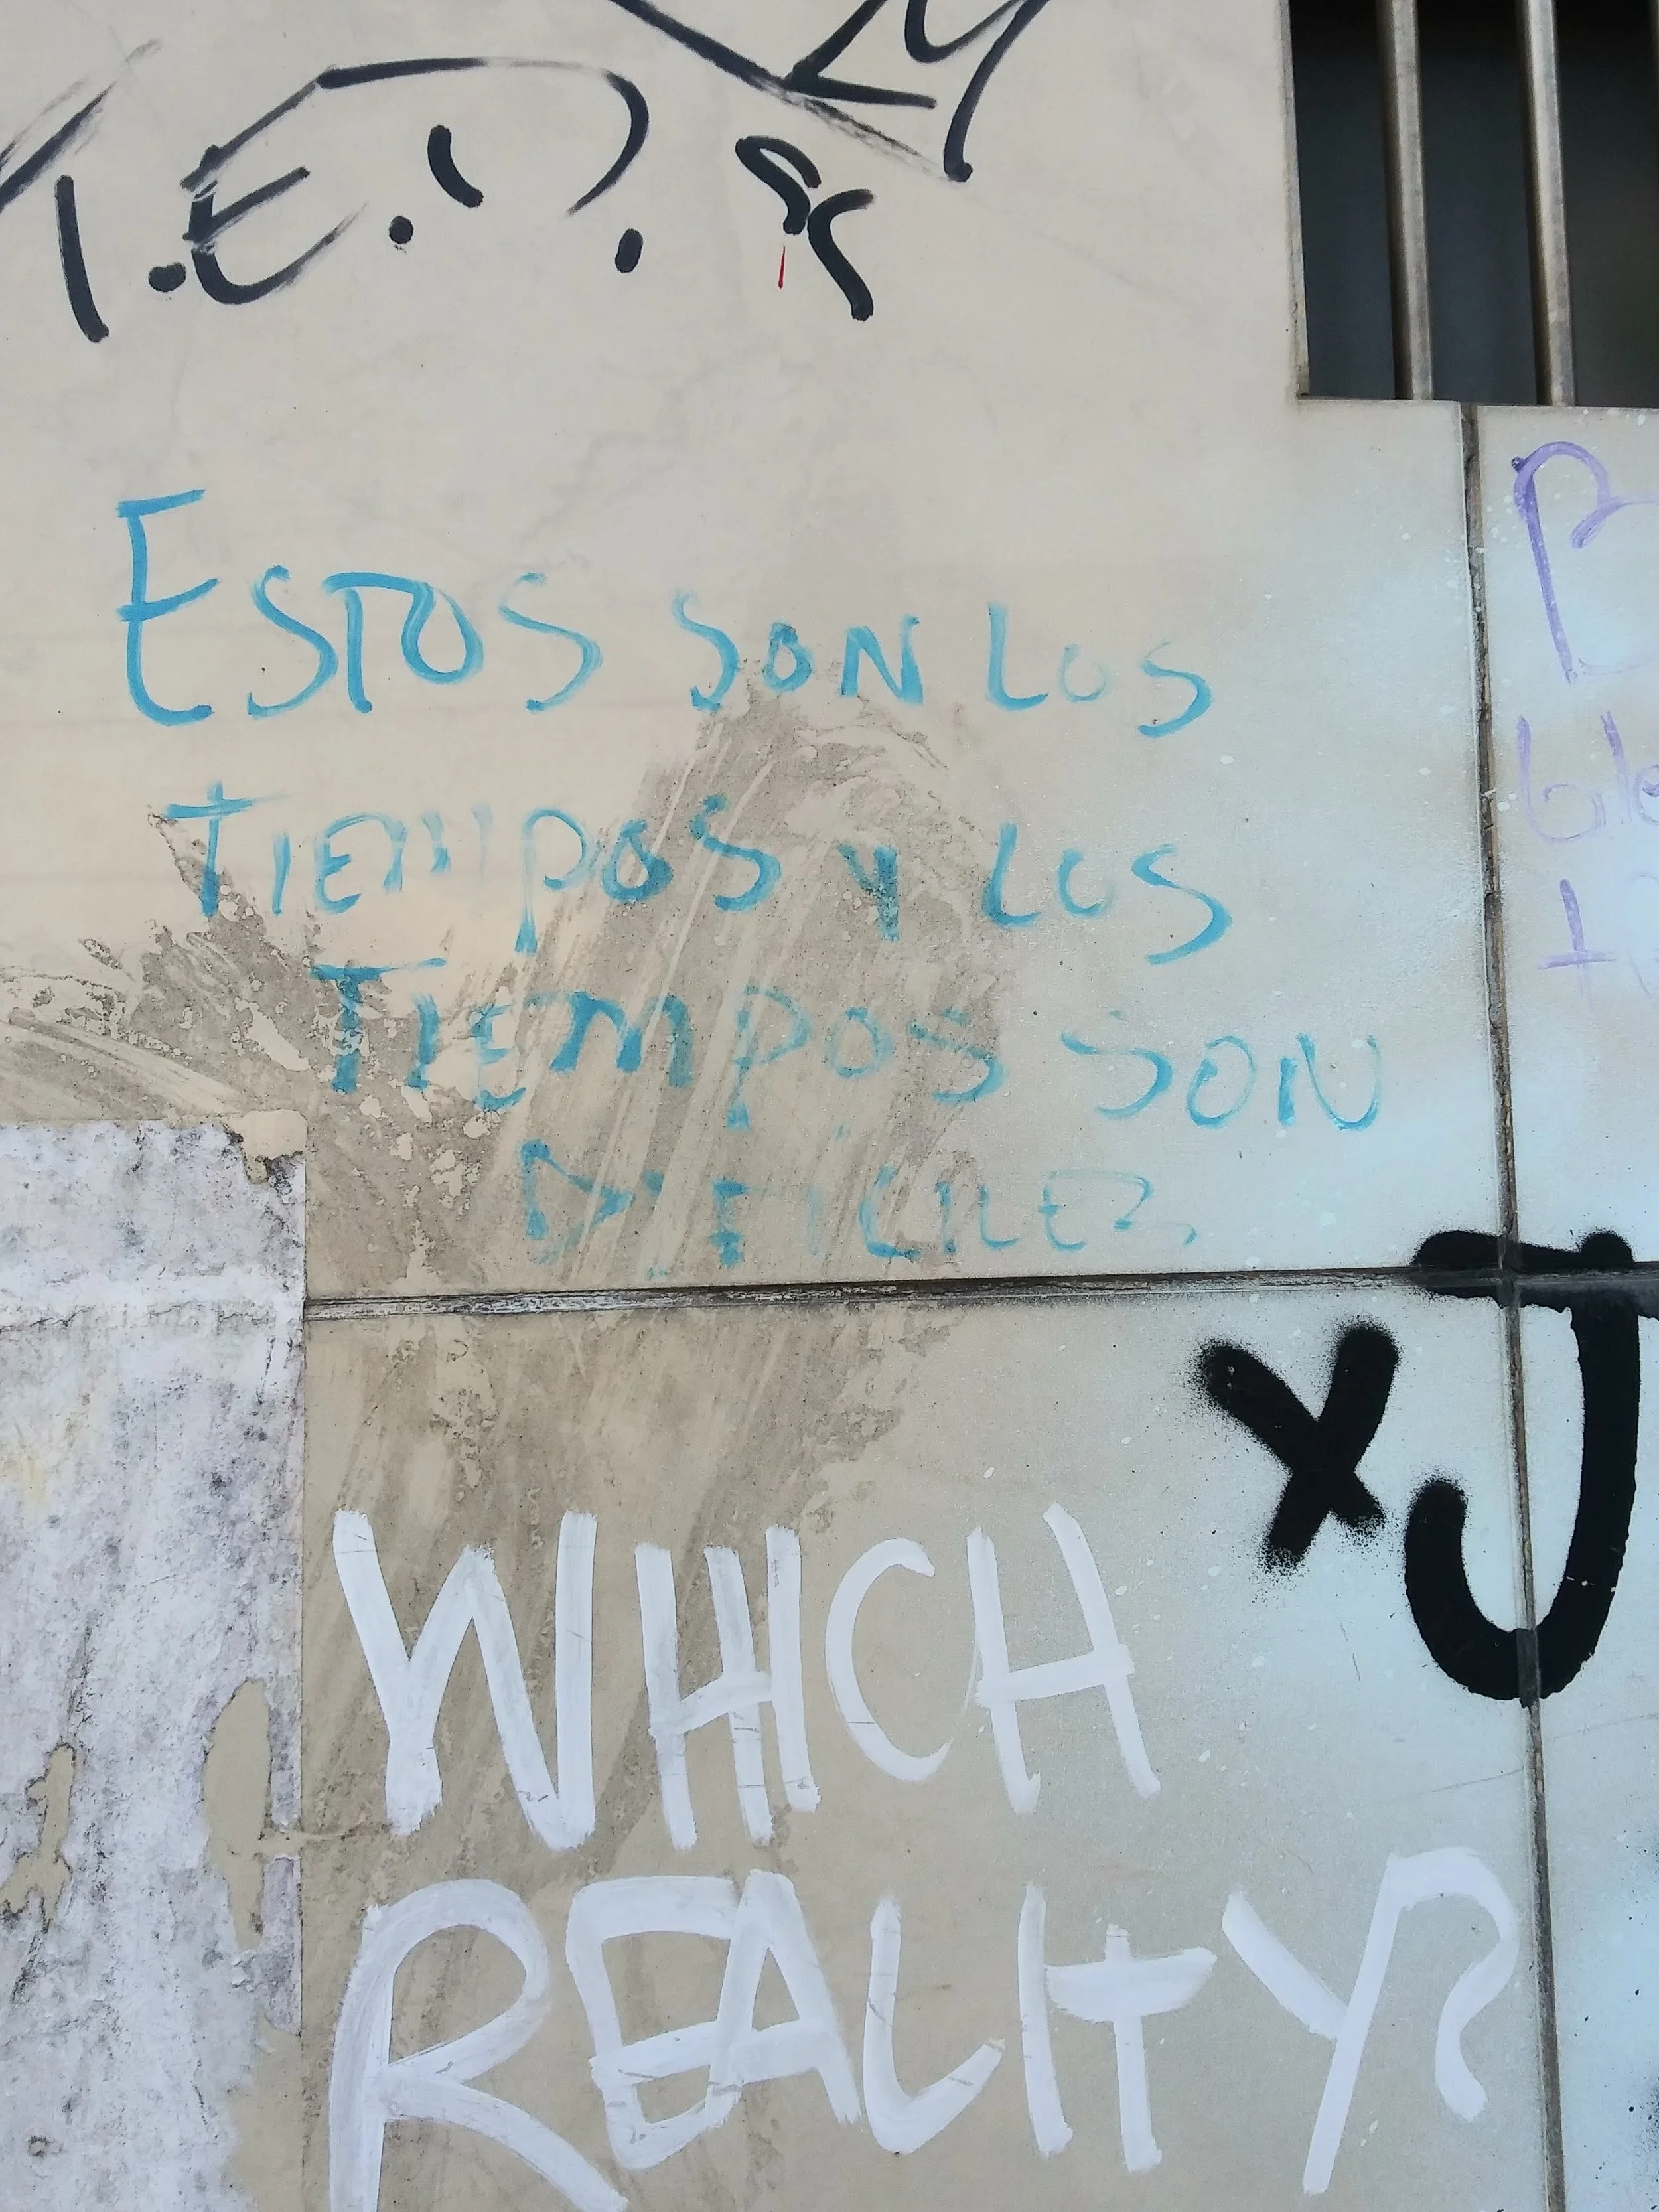 T.E.D.
ESTOS SON LOS
TIEMPOS Y LOS
TIEMPOS SON
DIFICILES.
xJ
WHICH
REALITY?